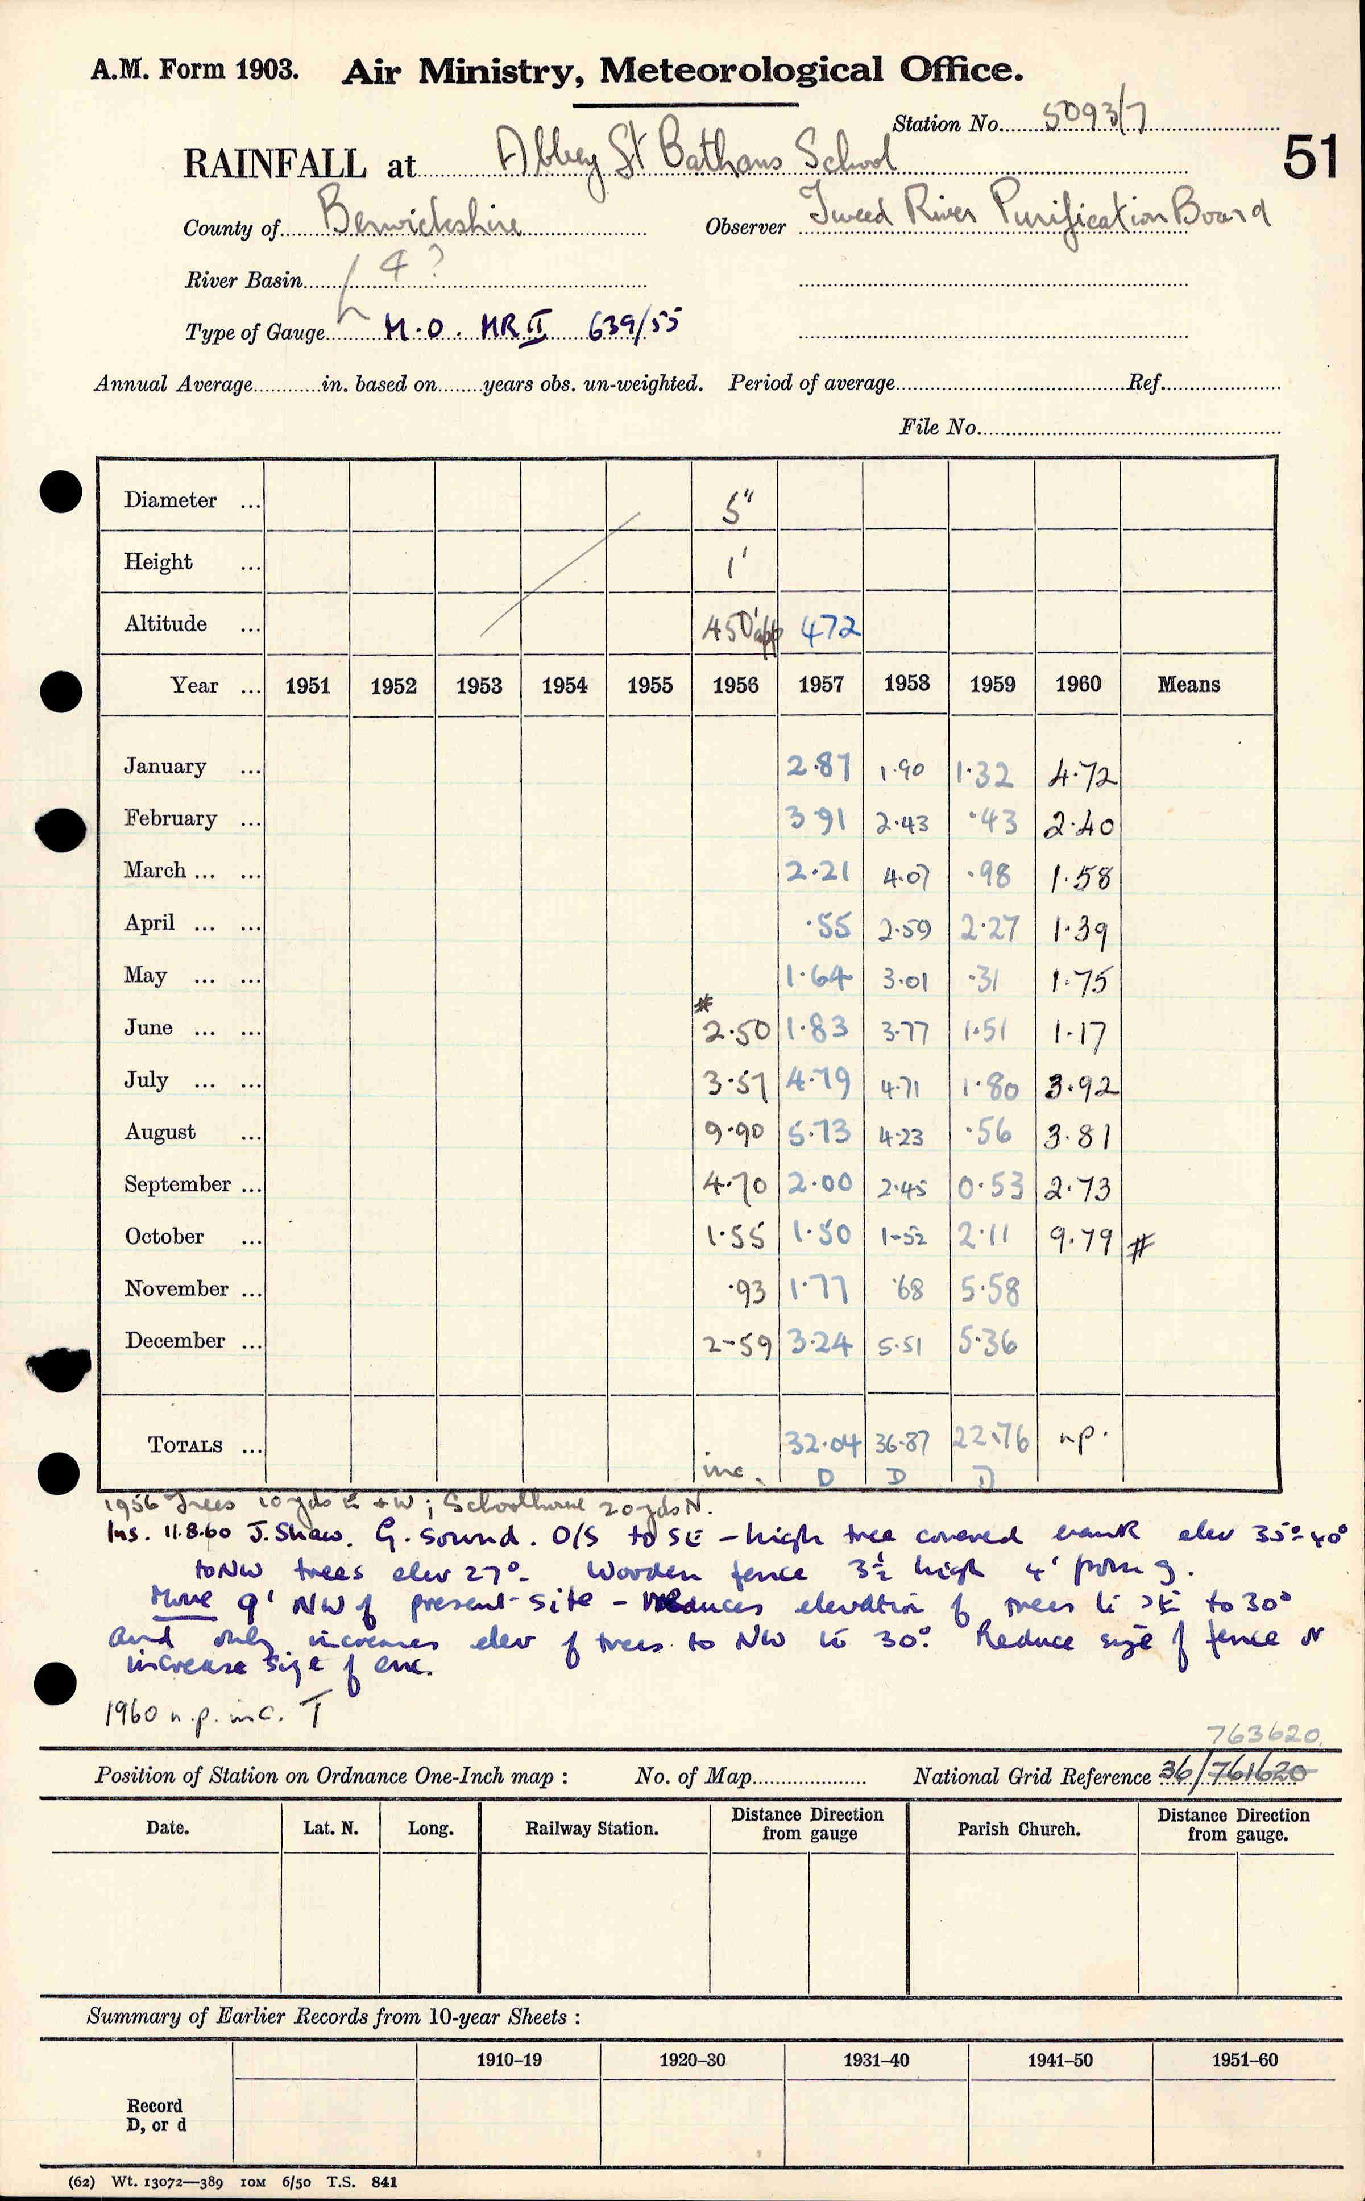 A.M. Form 1903. Air Ministry, Meteorological Office.
Station No. 5093/7
51
RAINFALL at Abbey St Bathans School
County of Berwickshire Observer Tweed River Purification Board
River Basin 4 ?
Type of Gauge M.O. MR II 639/55
Annual Average in. based on years obs. un-weighted. Period of average Ref.
File No.
Diameter ... 5"
Height ... 1'
Altitude ... 450' app 472
Year ... 1951 1952 1953 1954 1955 1956 1957 1958 1959 1960 Means
January ... 2.87 1.90 1.32 4.72
February ... 3.91 2.43 .43 2.40
March ... ... 2.21 4.07 .98 1.58
April ... ... .55 2.59 2.27 1.39
May ... ... 1.64 3.01 .31 1.75
#
June ... ... 2.50 1.83 3.77 1.51 1.17
July ... ... 3.57 4.79 4.71 1.80 3.92
August ... 9.90 5.73 4.23 .56 3.81
September ... 4.70 2.00 2.45 0.53 2.73
October ... 1.55 1.50 1.52 2.11 9.79 #
November ... .93 1.77 .68 5.58
December ... 2.59 3.24 5.51 5.36
TOTALS ... inc. 32.04 36.87 22.76 n.p.
D D D
1956 Trees 10 yds E + W; Schoolhouse 20 yds N.
Ins. 11.8.60 J. Shaw. G. sound. O/S to SE – high tree covered bank elev 35°-40°
to NW trees elev 27°. Wooden fence 3½ high 4' from g.
Move 9' NW of present site – reduces elevation of trees to SE to 30°
and only increases elev of trees to NW to 30°. Reduce size of fence or
increase size of enc.
1960 n.p. inc. T
763620
Position of Station on Ordnance One-Inch map : No. of Map National Grid Reference 36/761620
Date. Lat. N. Long. Railway Station. Distance Direction from gauge Parish Church. Distance Direction from gauge.
Summary of Earlier Records from 10-year Sheets :
1910–19 1920–30 1931–40 1941–50 1951–60
Record
D, or d
(62) Wt. 13072—389 10M 6/50 T.S. 841